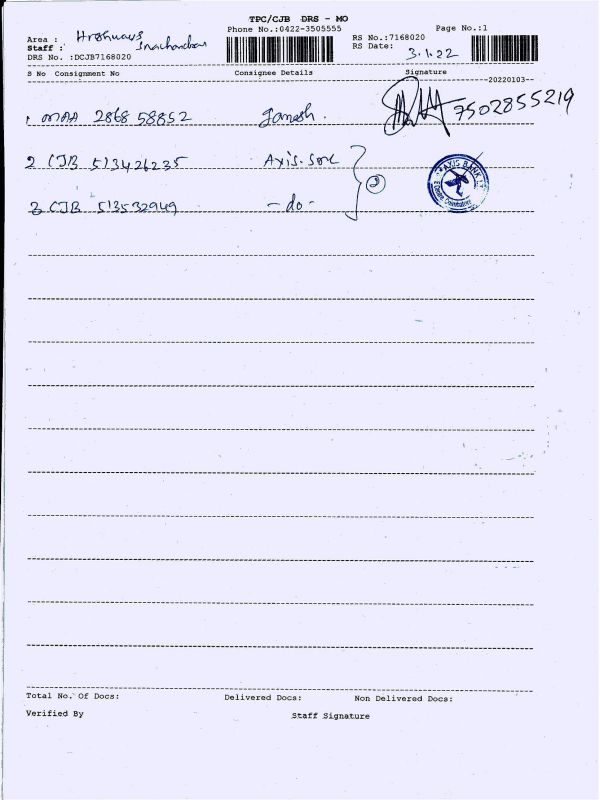 TPC/CJB DRS - MO
Phone No.:0422-3505555 Page No.:1
Area : RS No.:7168020
Staff : RS Date: 3.1.22
DRS No. :DCJB7168020
S No Consignment No Consignee Details Signature
20220103
1 MAA 286858852 Ganesh. 7502855219
2 CJB 513426235 Axis. 2 AXIS BANK
3 CJB 513532949 - do -
Total No. Of Docs: Delivered Docs: Non Delivered Docs:
Verified By Staff Signature